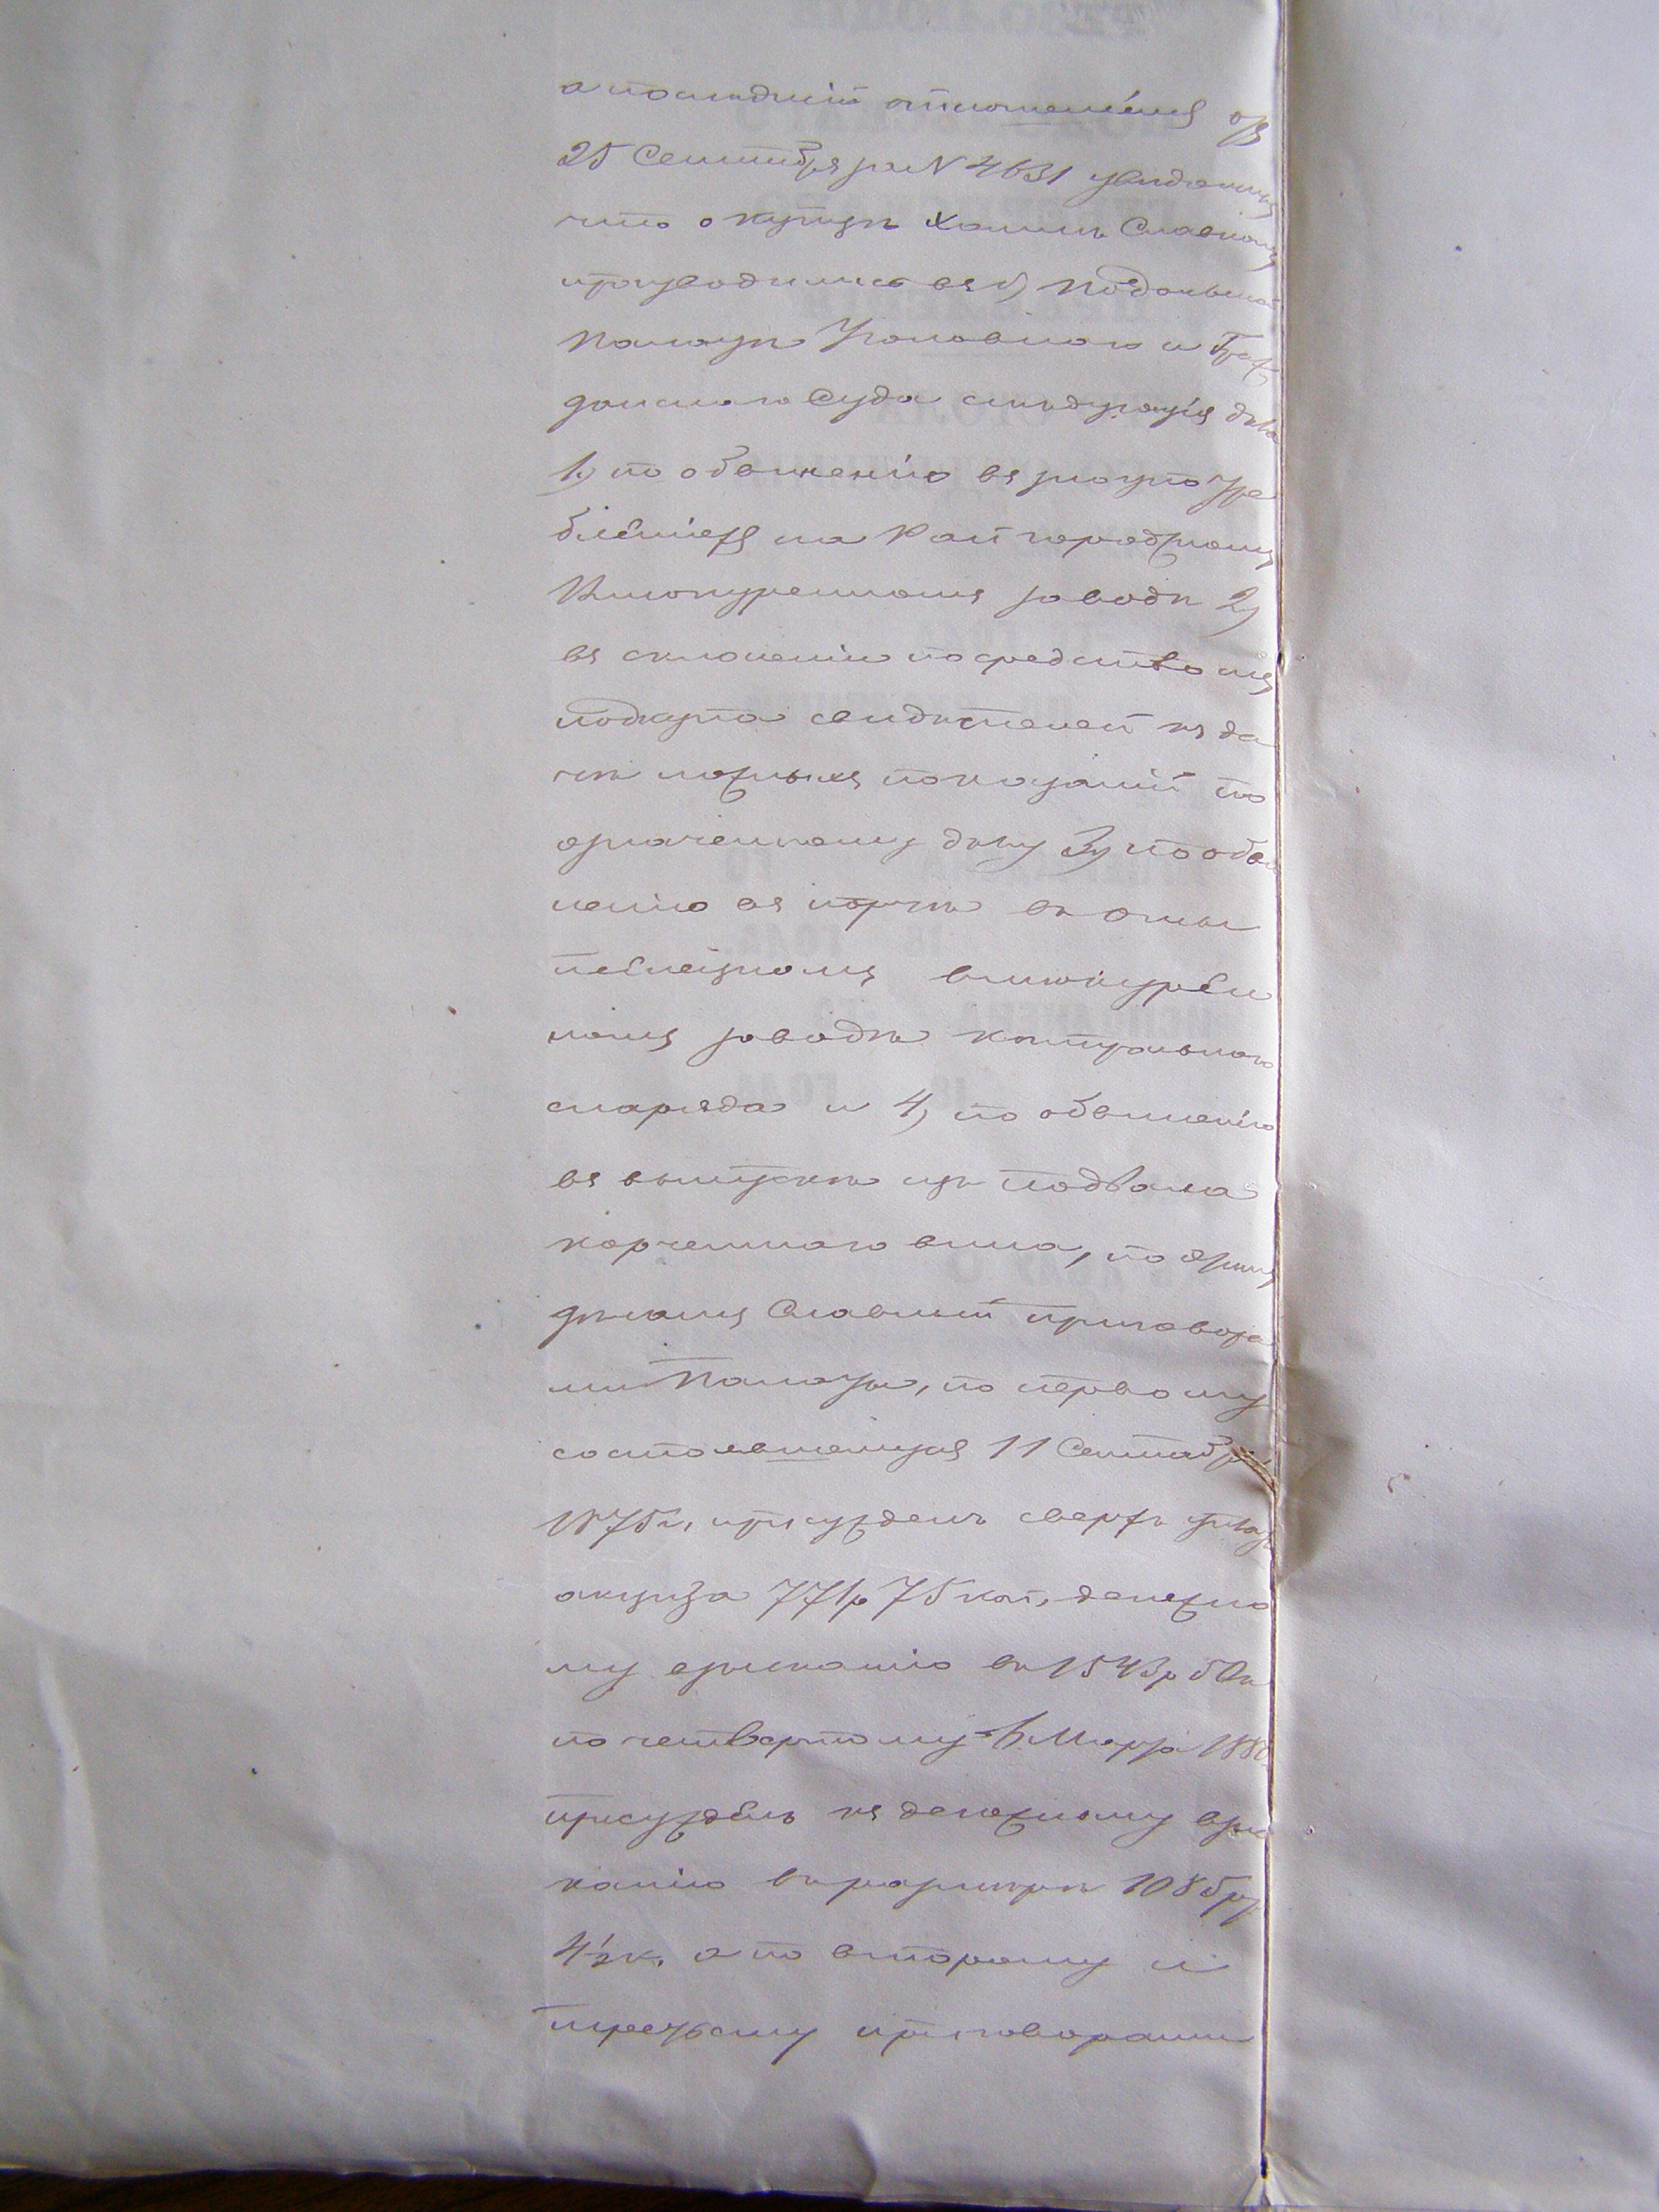 а последній отношеніемъ отъ
25 Сентября за N 4631 увѣдомилъ
что о купцѣ Хаимѣ Славномъ
производились въ Подольской
Палатѣ Уголовнаго и Граж
данскаго Суда слѣдующія дѣла
1) по обвиненію въ злоупотре
бленіяхъ на Райгородскомъ
Винокуренномъ заводѣ 2)
въ склоненіи посредствомъ
подкупа свидѣтелей къ да
чѣ ложныхъ показаній по
означенному дѣлу 3) по обви
ненію въ порчѣ въ
винокурен
номъ заводѣ контрольнаго
снаряда и 4) по обвиненію
въ выпускѣ изъ подвала
корчемнаго вина, по
дѣламъ Славный приговора
ми Палаты, по первому
состоявшемуся 11 Сентября
1875г. присужденъ сверхъ
акциза 771р 75 коп, денежно
му взысканію въ 1543р 50к
по четвертому 6 Марта 188
присужденъ къ денежному взыс
канію въ размѣрѣ 1085 р
4½ к. а по второму и
третьему приговорами